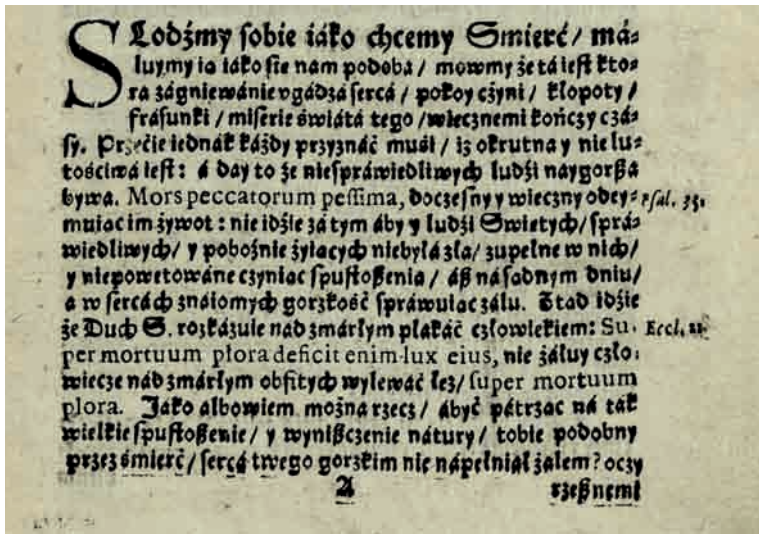 SLodźmy sobie iáko chcemy Smierć / má⸗
luymy ią iáko sie nam podoba / mowmy że tá iest kto⸗
ra zágniewánie vgadza sercá / pokoy cżyni / kłopoty /
frásunki / miserie świátá tego / wiecznemi kończy czá⸗
sy. Przećie iednák káżdy przyznáć muśi / iż okrutna y nielu⸗
tośćiwa iest: á day to że niespráwiedliwych ludźi naygorßa
bywa. Mors peccatorum pessima, docześny y wieczny odey⸗ Psal. 33.
muiąc im żywot: nie idźie zá tym áby y ludźi Swiętych / sprá⸗
wiedliwych / y pobożnie żyiących niebyłá zła / zupełne w nich /
y niepowetowáne czyniąc spustoßenia / áß ná sądnym dniu /
a w sercách znáiomych gorzkość spráwuiąc żálu. Ztąd idźie
że Duch S. rozkázuie nád zmárłym płákáć człowiekiem: Su⸗ Eccl. 22
per mortuum plora deficit enim lux eius, nie żáłuy czło⸗
wiecze nád zmárłym obfitych wylewáć łez / super mortuum
plora. Jáko álbowiem można rzecz / ábyć pátrząc ná ták
wielkie spustoßenie / y wynißczenie nátury / tobie podobny
przez śmierć / sercá twego gorzkim nie nápełniał żalem? oczy
A rzeßnemi